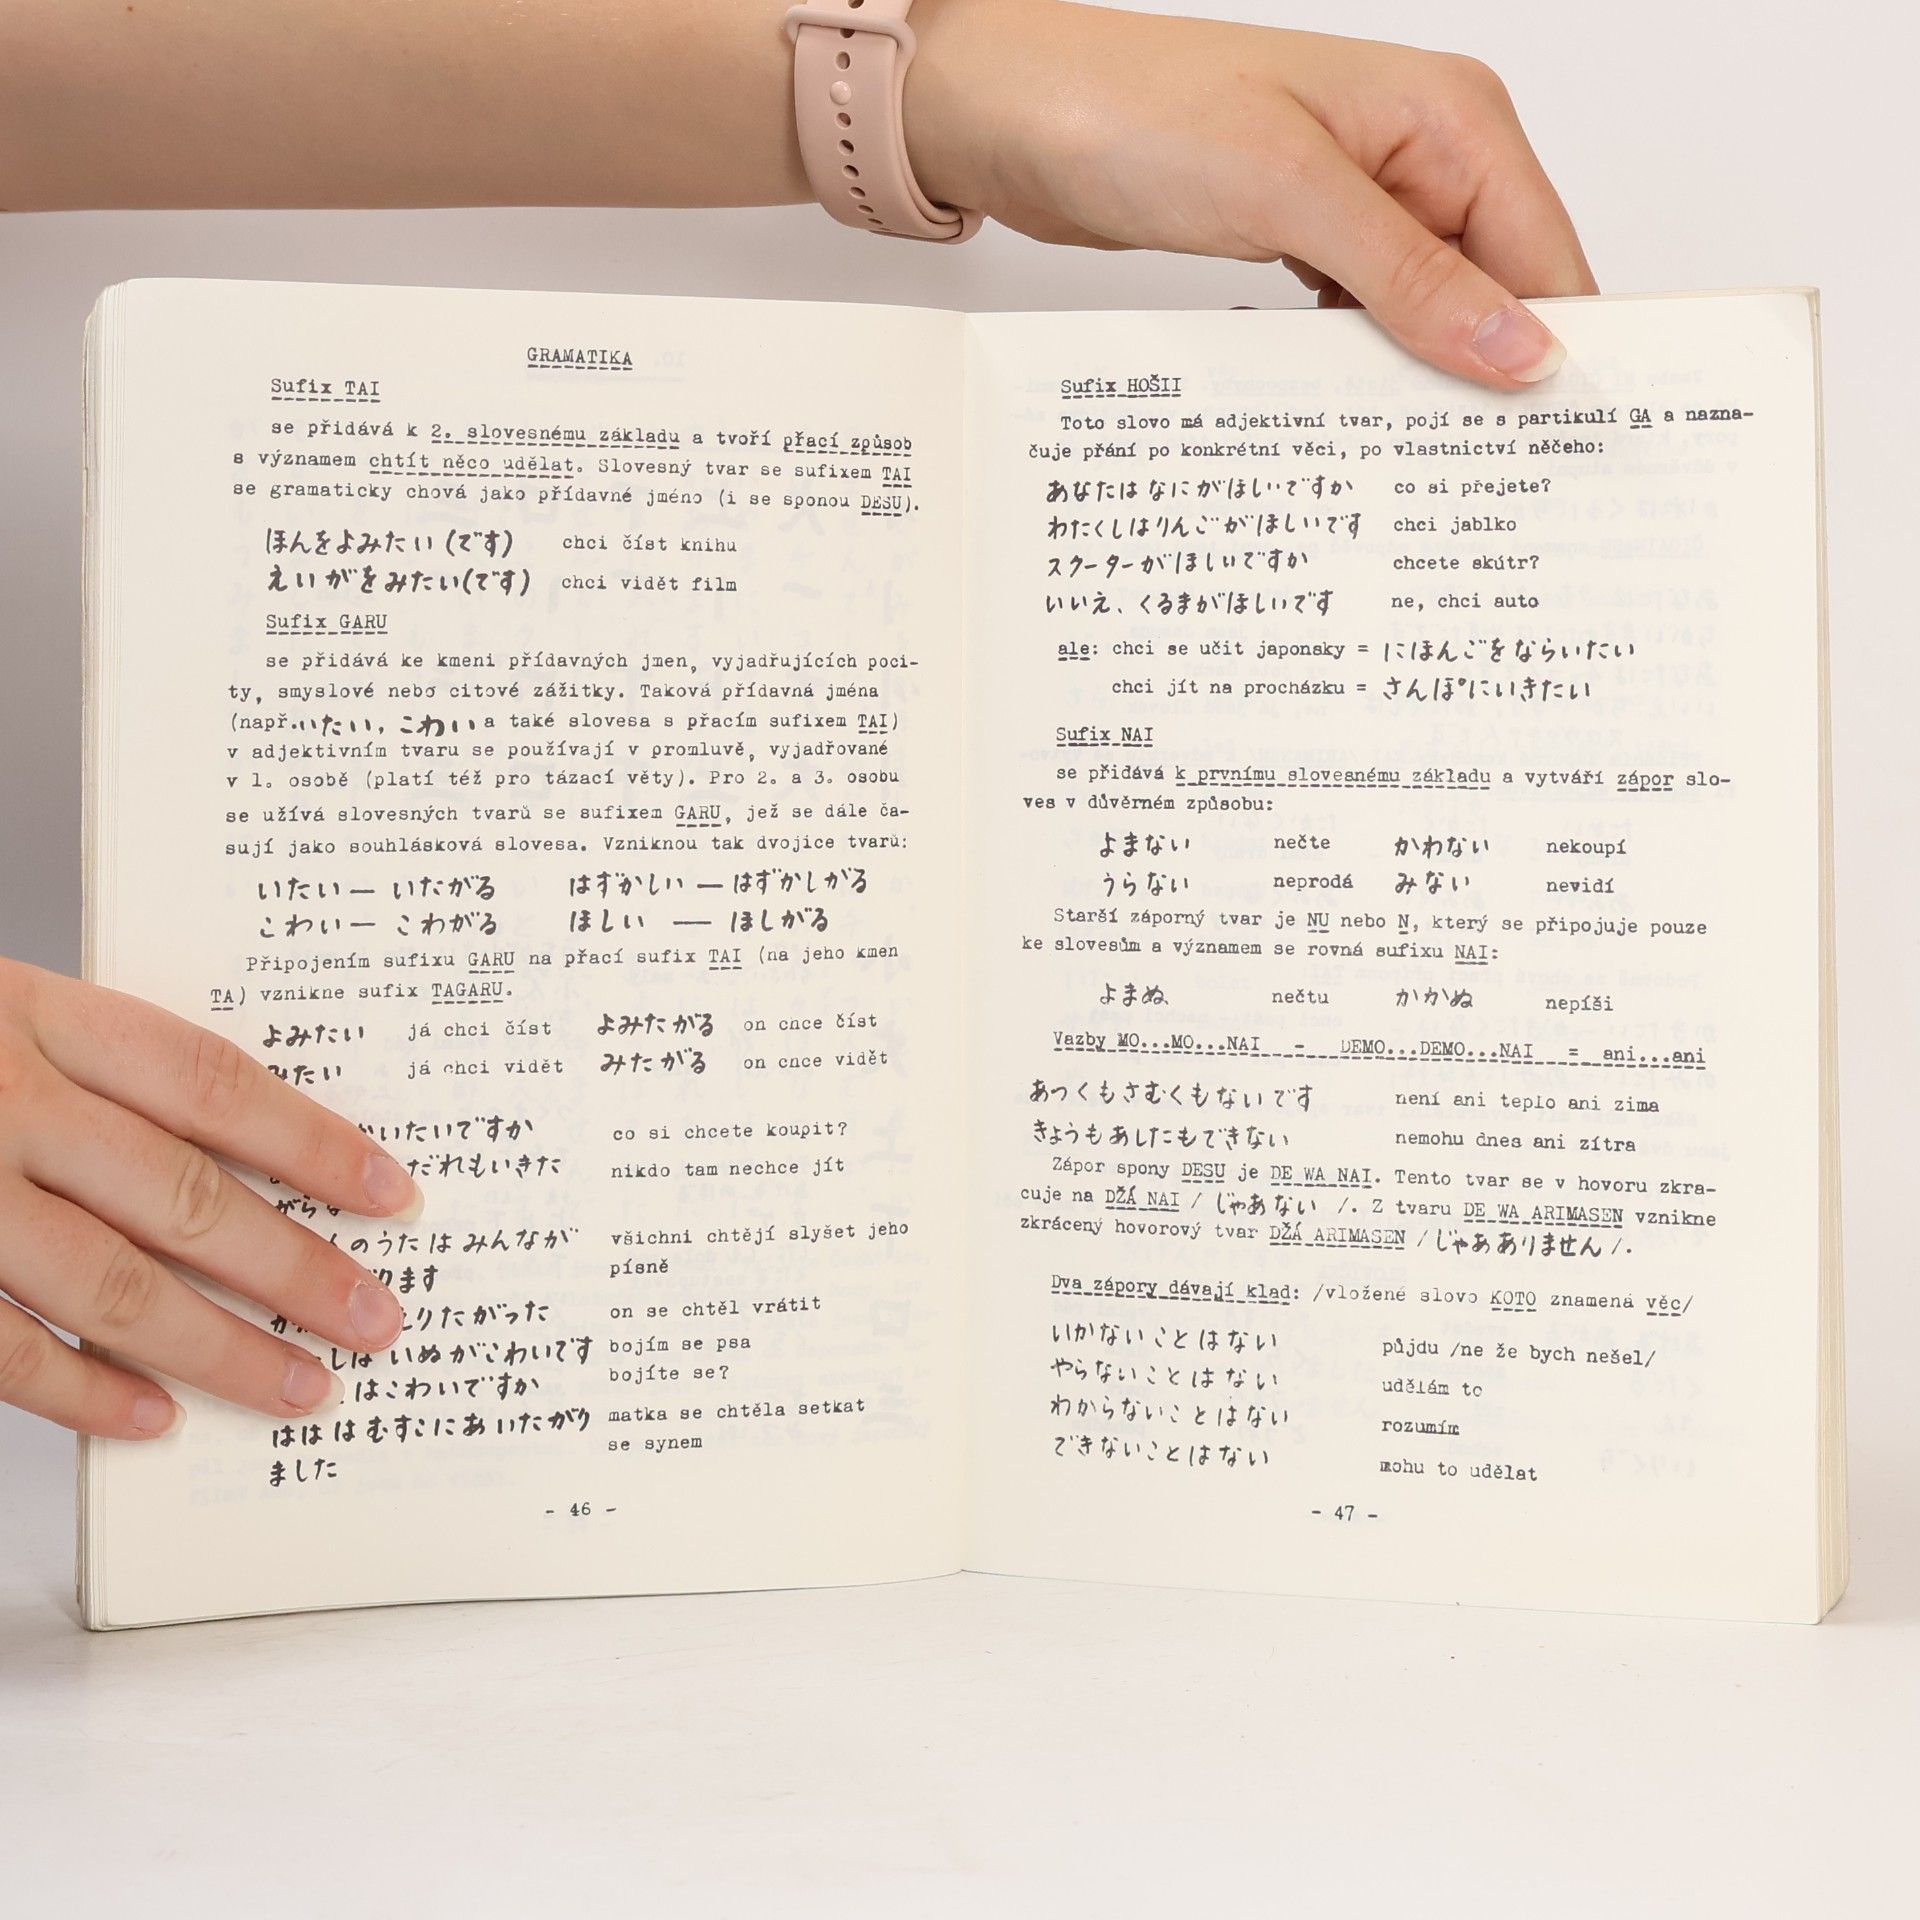 GRAMATIKA
Sufix TAI
se přidává k 2. slovesnému základu a tvoří přací způsob
s významem chtít něco udělat. Slovesný tvar se sufixem TAI
se gramaticky chová jako přídavné jméno (i se sponou DESU).
ほんをよみたい(です) chci číst knihu
えいがをみたい(です) chci vidět film
Sufix GARU
se přidává ke kmeni přídavných jmen, vyjadřujících poci-
ty, smyslové nebo citové zážitky. Taková přídavná jména
(např.いたい, こわい a také slovesa s přacím sufixem TAI)
v adjektivním tvaru se používají v promluvě, vyjadřované
v 1. osobě (platí též pro tázací věty). Pro 2. a 3. osobu
se užívá slovesných tvarů se sufixem GARU, jež se dále ča-
sují jako souhlásková slovesa. Vzniknou tak dvojice tvarů:
いたい — いたがる はずかしい — はずかしがる
こわい — こわがる ほしい — ほしがる
Připojením sufixu GARU na přací sufix TAI (na jeho kmen
TA) vznikne sufix TAGARU.
よみたい já chci číst よみたがる on cnce číst
みたい já chci vidět みたがる on cnce vidět
かいたいですか co si chcete koupit?
だれもいきた nikdo tam nechce jít
がらな
のうたはみんなが všichni chtějí slyšet jeho
ります písně
えりたがった on se chtěl vrátit
しはいぬがこわいです bojím se psa
はこわいですか bojíte se?
はははむすこにあいたがり matka se chtěla setkat
ました se synem
- 46 -
Sufix HOŠII
Toto slovo má adjektivní tvar, pojí se s partikulí GA a nazna-
čuje přání po konkrétní věci, po vlastnictví něčeho:
あなたはなにがほしいですか co si přejete?
わたくしはりんごがほしいです chci jablko
スクーターがほしいですか chcete skútr?
いいえ、くるまがほしいです ne, chci auto
ale: chci se učit japonsky = にほんごをならいたい
chci jít na procházku = さんぽにいきたい
Sufix NAI
se přidává k prvnímu slovesnému základu a vytváří zápor slo-
ves v důvěrném způsobu:
よまない nečte かわない nekoupí
うらない neprodá みない nevidí
Starší záporný tvar je NU nebo N, který se připojuje pouze
ke slovesům a významem se rovná sufixu NAI:
よまぬ nečtu かかぬ nepíši
Vazby MO...MO...NAI - DEMO...DEMO...NAI = ani...ani
あつくもさむくもないです není ani teplo ani zima
きょうもあしたもできない nemohu dnes ani zítra
Zápor spony DESU je DE WA NAI. Tento tvar se v hovoru zkra-
cuje na DŽÁ NAI / じゃあない /. Z tvaru DE WA ARIMASEN vznikne
zkrácený hovorový tvar DŽÁ ARIMASEN / じゃあありません /.
Dva zápory dávají klad: /vložené slovo KOTO znamená věc/
いかないことはない půjdu /ne že bych nešel/
やらないことはない udělám to
わからないことはない rozumím
できないことはない mohu to udělat
- 47 -